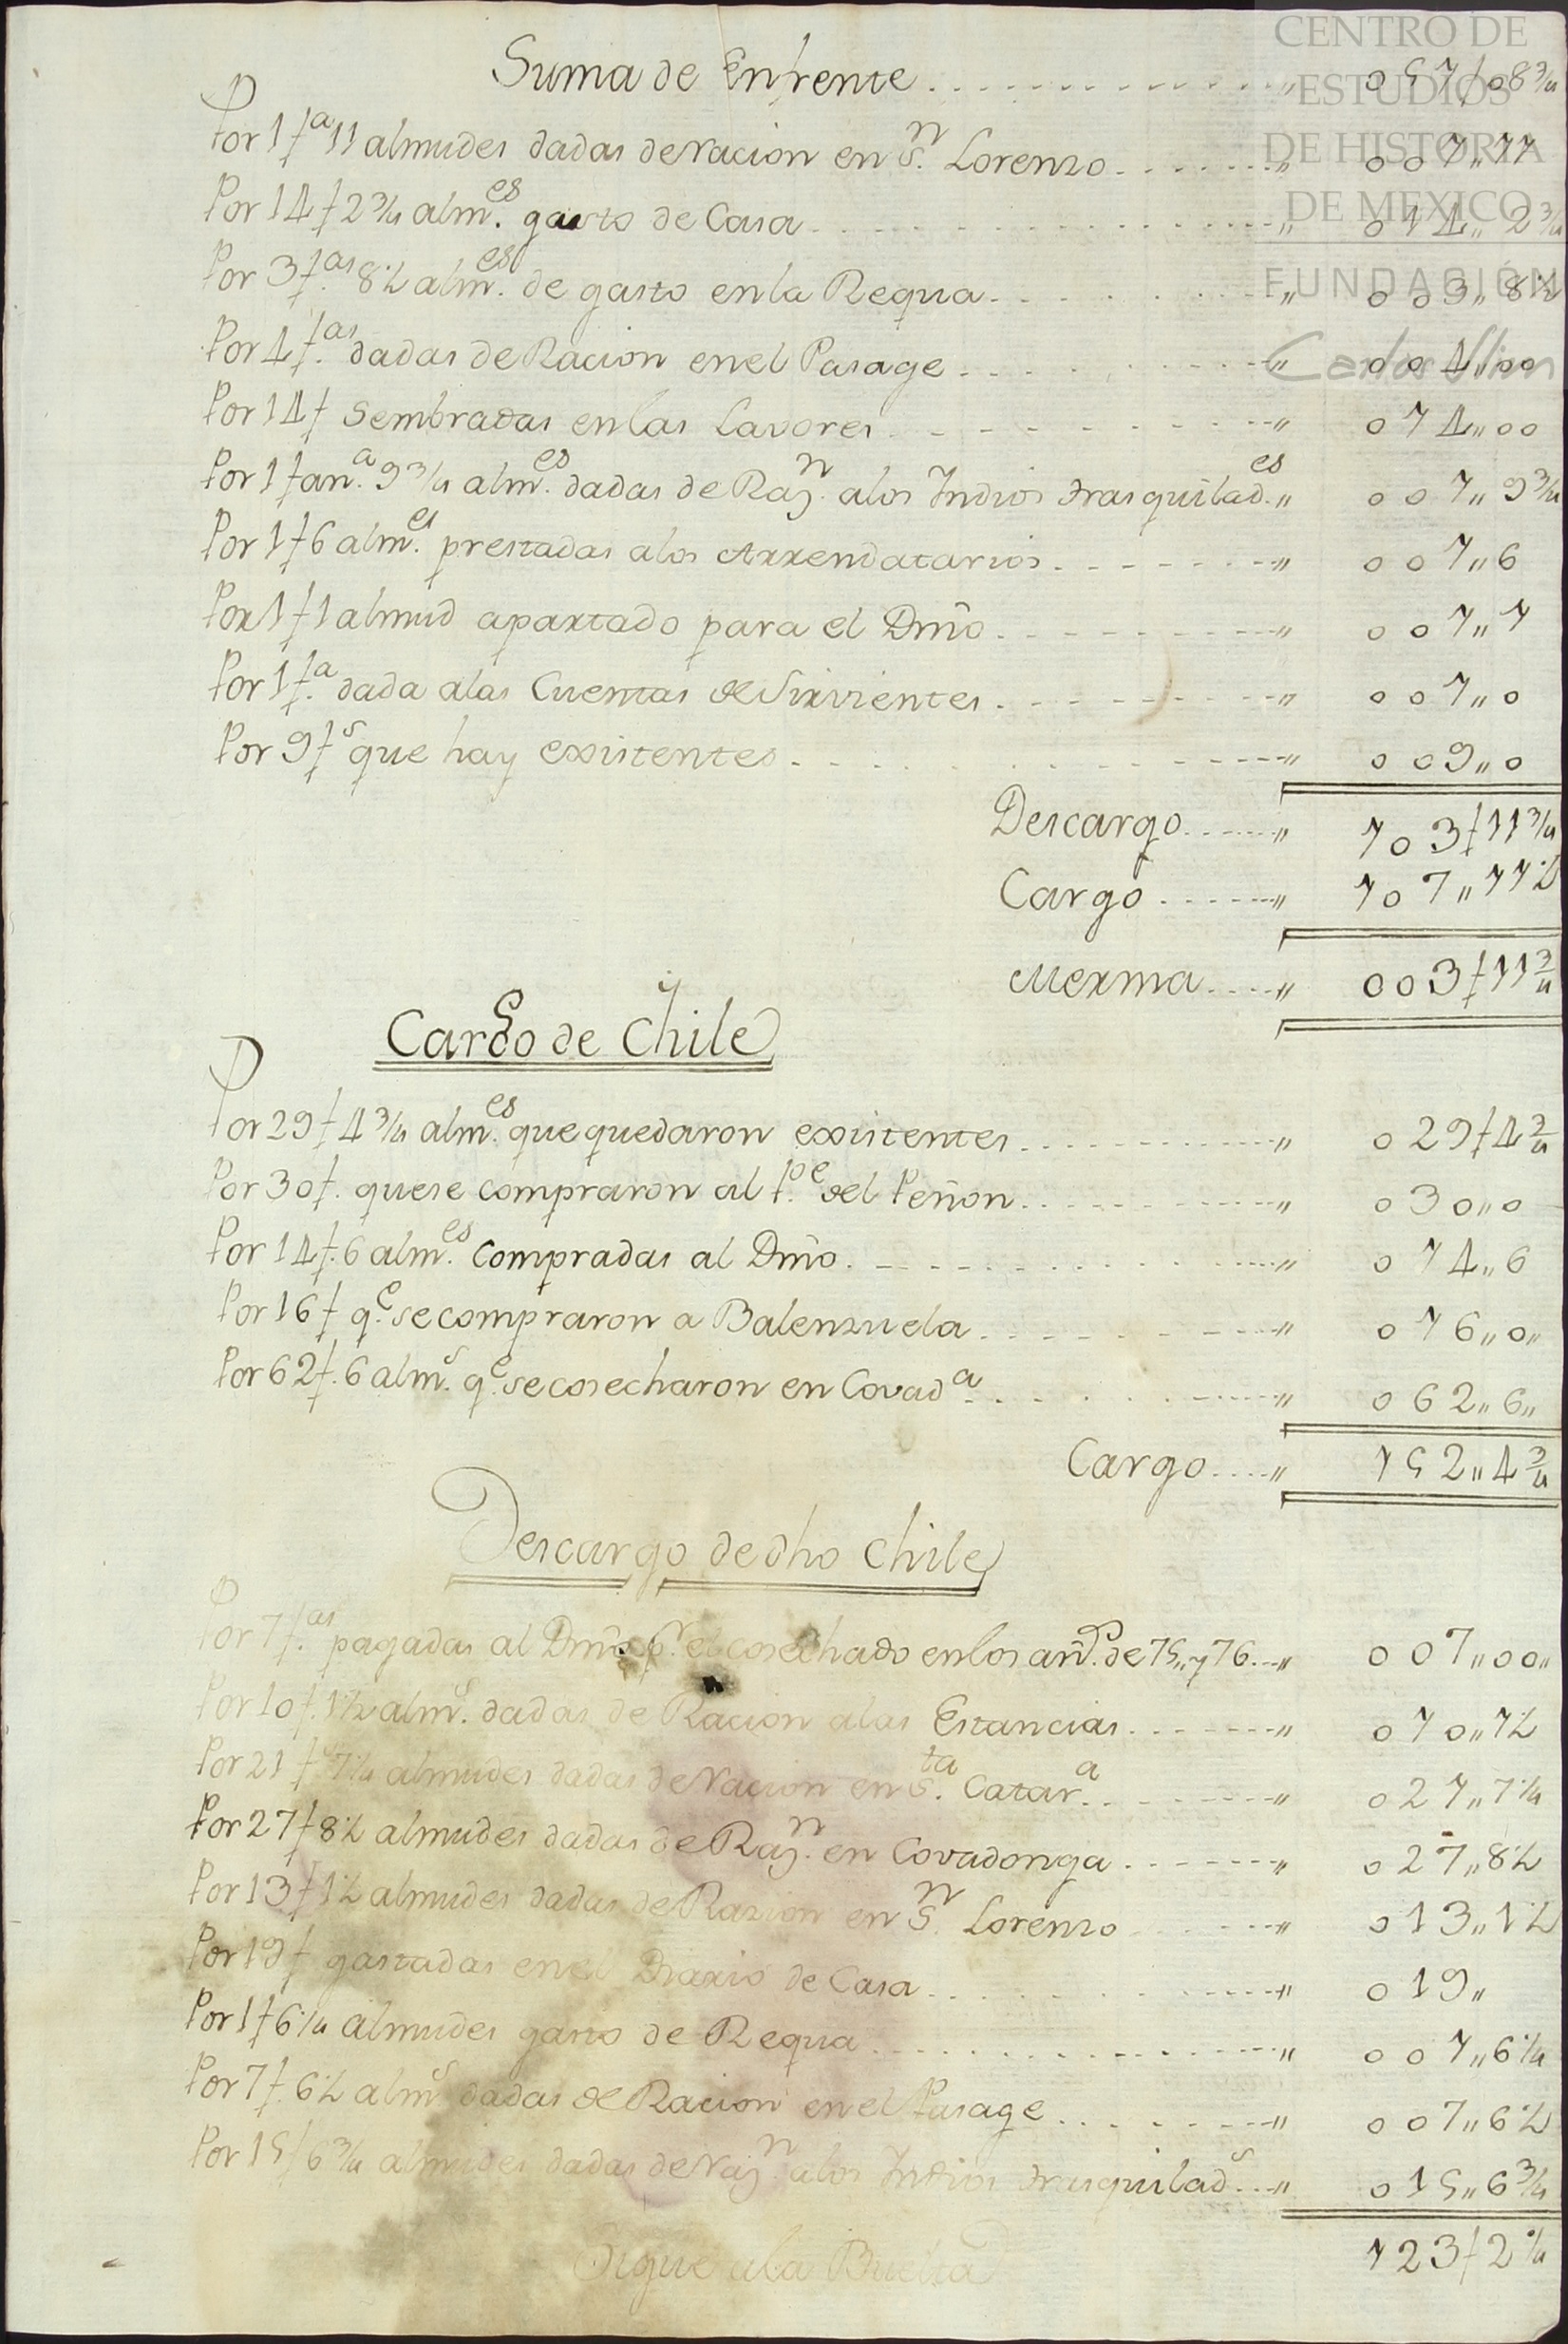 CENTRO DE
ESTUDIOS
DE HISTORIA
DE MEXICO
FUNDACIÓN
Carlos Slim
Suma de Enfrente „ 057f08¾
Por 1fª 11 almudes dadas de racion en Sⁿ. Lorenzo „ 001„11
Por 14f 2¾ almᵉˢ. gasto de Casa „ 014„2¾
Por 3fᵃˢ. 8½ almᵉˢ. de gasto en la Requa „ 003„8½
Por 4fᵃˢ. dadas de Racion en el Pasage „ 004„00
Por 14f sembradas en las Lavores „ 014„00
Por 1 fanª. 9¾ almᵉˢ. dadas de Razⁿ. a los Indios trasquiladᵉˢ. „ 001„9¾
Por 1f 6 almᵉˢ. prestadas a los Arrendatarios „ 001„6
Por 1f 1 almud apartado para el Dm̃o „ 001„1
Por 1fª. dada a las Cuentas de Sirvientes „ 001„0
Por 9fˢ que hay existentes „ 009„0
Descargo „ 103f11¾
Cargo „ 107„11½
Merma „ 003f11¾
Cargo de Chile
Por 29f 4¾ almᵉˢ. que quedaron existentes „ 029f4¾
Por 30f. que se compraron al Pᵉ. del Peñon „ 030„0
Por 14f. 6 almᵉˢ. compradas al Dm̃o „ 014„6
Por 16f qᵉ. se compraron a Balenzuela „ 016„0„
Por 62f. 6 almˢ. qᵉ. se cosecharon en Covadª. „ 062„6„
Cargo „ 152„4¾
Descargo de dho Chile
Por 7fᵃˢ. pagadas al Dm̃o pʳ. el cosechado en los añˢ. de 75„ y 76 „ 007„00„
Por 10f. 1½ almˢ. dadas de Racion a las Estancias „ 010„1½
Por 21fˢ 7¼ almudes dadas de racion en Sᵗᵃ. Catarª. „ 021„7¼
Por 27f 8½ almudes dadas de Razⁿ. en Covadonga „ 027„8½
Por 13f 1½ almudes dadas de Razion en Sⁿ. Lorenzo „ 013„1½
Por 19f gastadas en el Diario de Casa „ 019„
Por 1f 6¼ almudes gasto de Requa „ 001„6¼
Por 7f. 6½ almˢ dadas de Racion en el Pasage „ 007„6½
Por 15f 6¾ almudes dadas de razⁿ. a los Indios trasquiladˢ. „ 015„6¾
Sigue a la Buelta 123f2¼